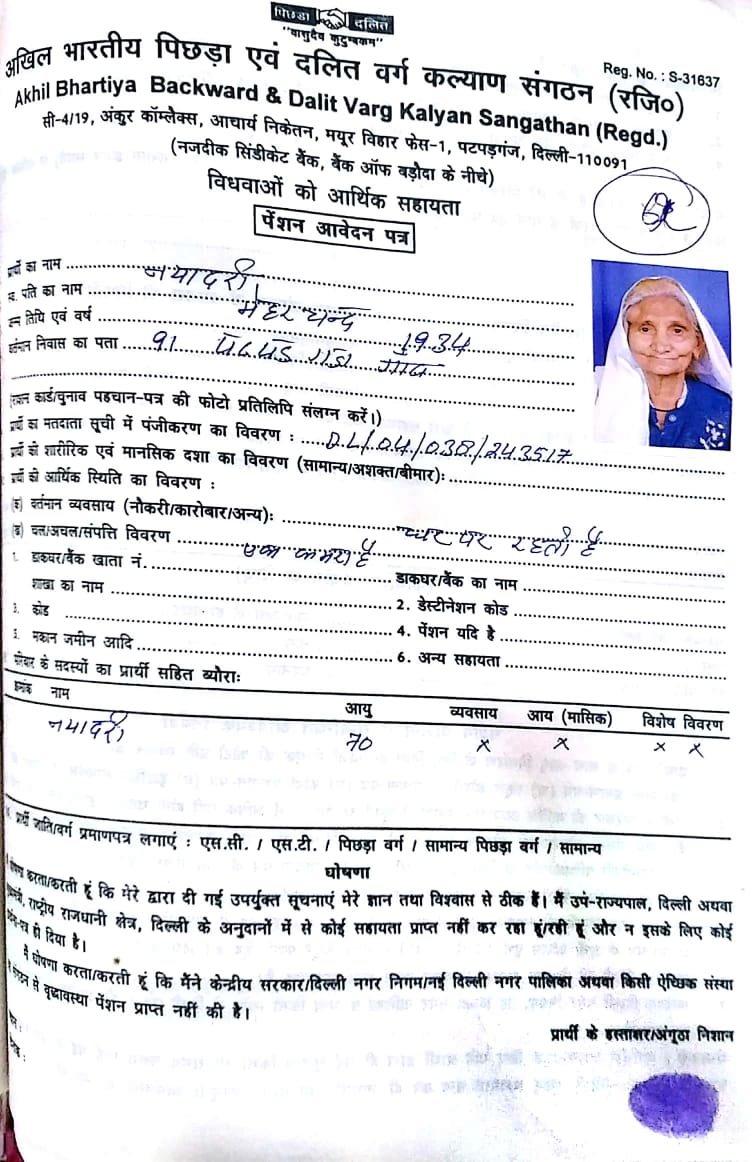 पिछड़ा दलित
"वासुदैव कुटुम्बकम"
अखिल भारतीय पिछड़ा एवं दलित वर्ग कल्याण संगठन (रजि०)
Reg. No. : S-31637
Akhil Bhartiya Backward & Dalit Varg Kalyan Sangathan (Regd.)
सी-4/19, अंकुर कॉम्लैक्स, आचार्य निकेतन, मयूर विहार फेस-1, पटपड़गंज, दिल्ली-110091
(नजदीक सिंडीकेट बैंक, बैंक ऑफ बड़ौदा के नीचे)
विधवाओं को आर्थिक सहायता
पेंशन आवेदन पत्र
प्रार्थी का नाम
स्व. पति का नाम मेहर चन्द
जन्म तिथि एवं वर्ष 1934
वर्तमान निवास का पता 91
(राशन कार्ड/चुनाव पहचान-पत्र की फोटो प्रतिलिपि संलग्न करें।)
प्रार्थी का मतदाता सूची में पंजीकरण का विवरण : DL/04/038/243517
प्रार्थी की शारीरिक एवं मानसिक दशा का विवरण (सामान्य/अशक्त/बीमार):
प्रार्थी की आर्थिक स्थिति का विवरण :
(क) वर्तमान व्यवसाय (नौकरी/कारोबार/अन्य): घर पर रहती है
(ख) चल/अचल/संपत्ति विवरण एक कमरा है
1. डाकघर/बैंक खाता नं. डाकघर/बैंक का नाम
शाखा का नाम 2. डेस्टीनेशन कोड
3. कोड 4. पेंशन यदि है
मकान जमीन आदि 6. अन्य सहायता
परिवार के सदस्यों का प्रार्थी सहित ब्यौराः
क्रमांक नाम आयु व्यवसाय आय (मासिक) विशेष विवरण
70 x x x x
प्रार्थी जाति/वर्ग प्रमाणपत्र लगाएं : एस.सी. / एस.टी. / पिछड़ा वर्ग / सामान्य पिछड़ा वर्ग / सामान्य
घोषणा
घोषणा करता/करती हूं कि मेरे द्वारा दी गई उपर्युक्त सूचनाएं मेरे ज्ञान तथा विश्वास से ठीक है। मैं उप-राज्यपाल, दिल्ली अथवा
राष्ट्रीय राजधानी क्षेत्र, दिल्ली के अनुदानों में से कोई सहायता प्राप्त नहीं कर रहा हूं/रही हूं और न इसके लिए कोई
ही दिया है।
मैं घोषणा करता/करती हूं कि मैंने केन्द्रीय सरकार/दिल्ली नगर निगम/नई दिल्ली नगर पालिका अथवा किसी ऐच्छिक संस्था
से वृद्धावस्था पेंशन प्राप्त नहीं की है।
प्रार्थी के हस्ताक्षर/अंगुठा निशान